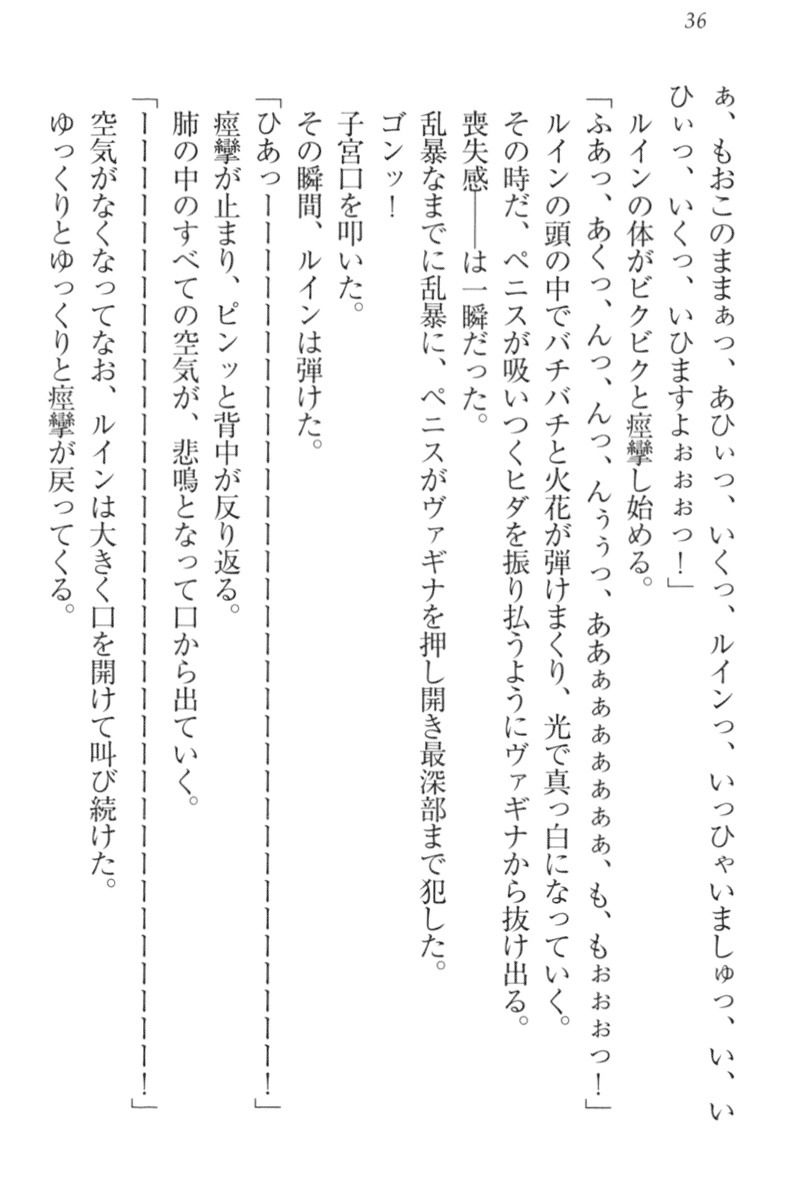 36
ぁ、もおこのままぁっ、あひぃっ、いくっ、ルインっ、いっひゃいましゅっ、い、い
ひぃっ、いくっ、いひますよぉぉぉっ！」
ルインの体がビクビクと痙攣し始める。
「ふあっ、あくっ、んっ、んっ、んぅぅっ、ああぁぁぁぁぁぁぁ、も、もぉぉぉっ！」
ルインの頭の中でバチバチと火花が弾けまくり、光で真っ白になっていく。
その時だ、ペニスが吸いつくヒダを振り払うようにヴァギナから抜け出る。
喪失感――は一瞬だった。
乱暴なまでに乱暴に、ペニスがヴァギナを押し開き最深部まで犯した。
ゴンッ！
子宮口を叩いた。
その瞬間、ルインは弾けた。
「ひあっーーーーーーーーーーーーーーーーーーーーーーーーーーーーーーーー！」
痙攣が止まり、ピンッと背中が反り返る。
肺の中のすべての空気が、悲鳴となって口から出ていく。
「ーーーーーーーーーーーーーーーーーーーーーーーーーーーーーーーーーーー！」
空気がなくなってなお、ルインは大きく口を開けて叫び続けた。
ゆっくりとゆっくりと痙攣が戻ってくる。